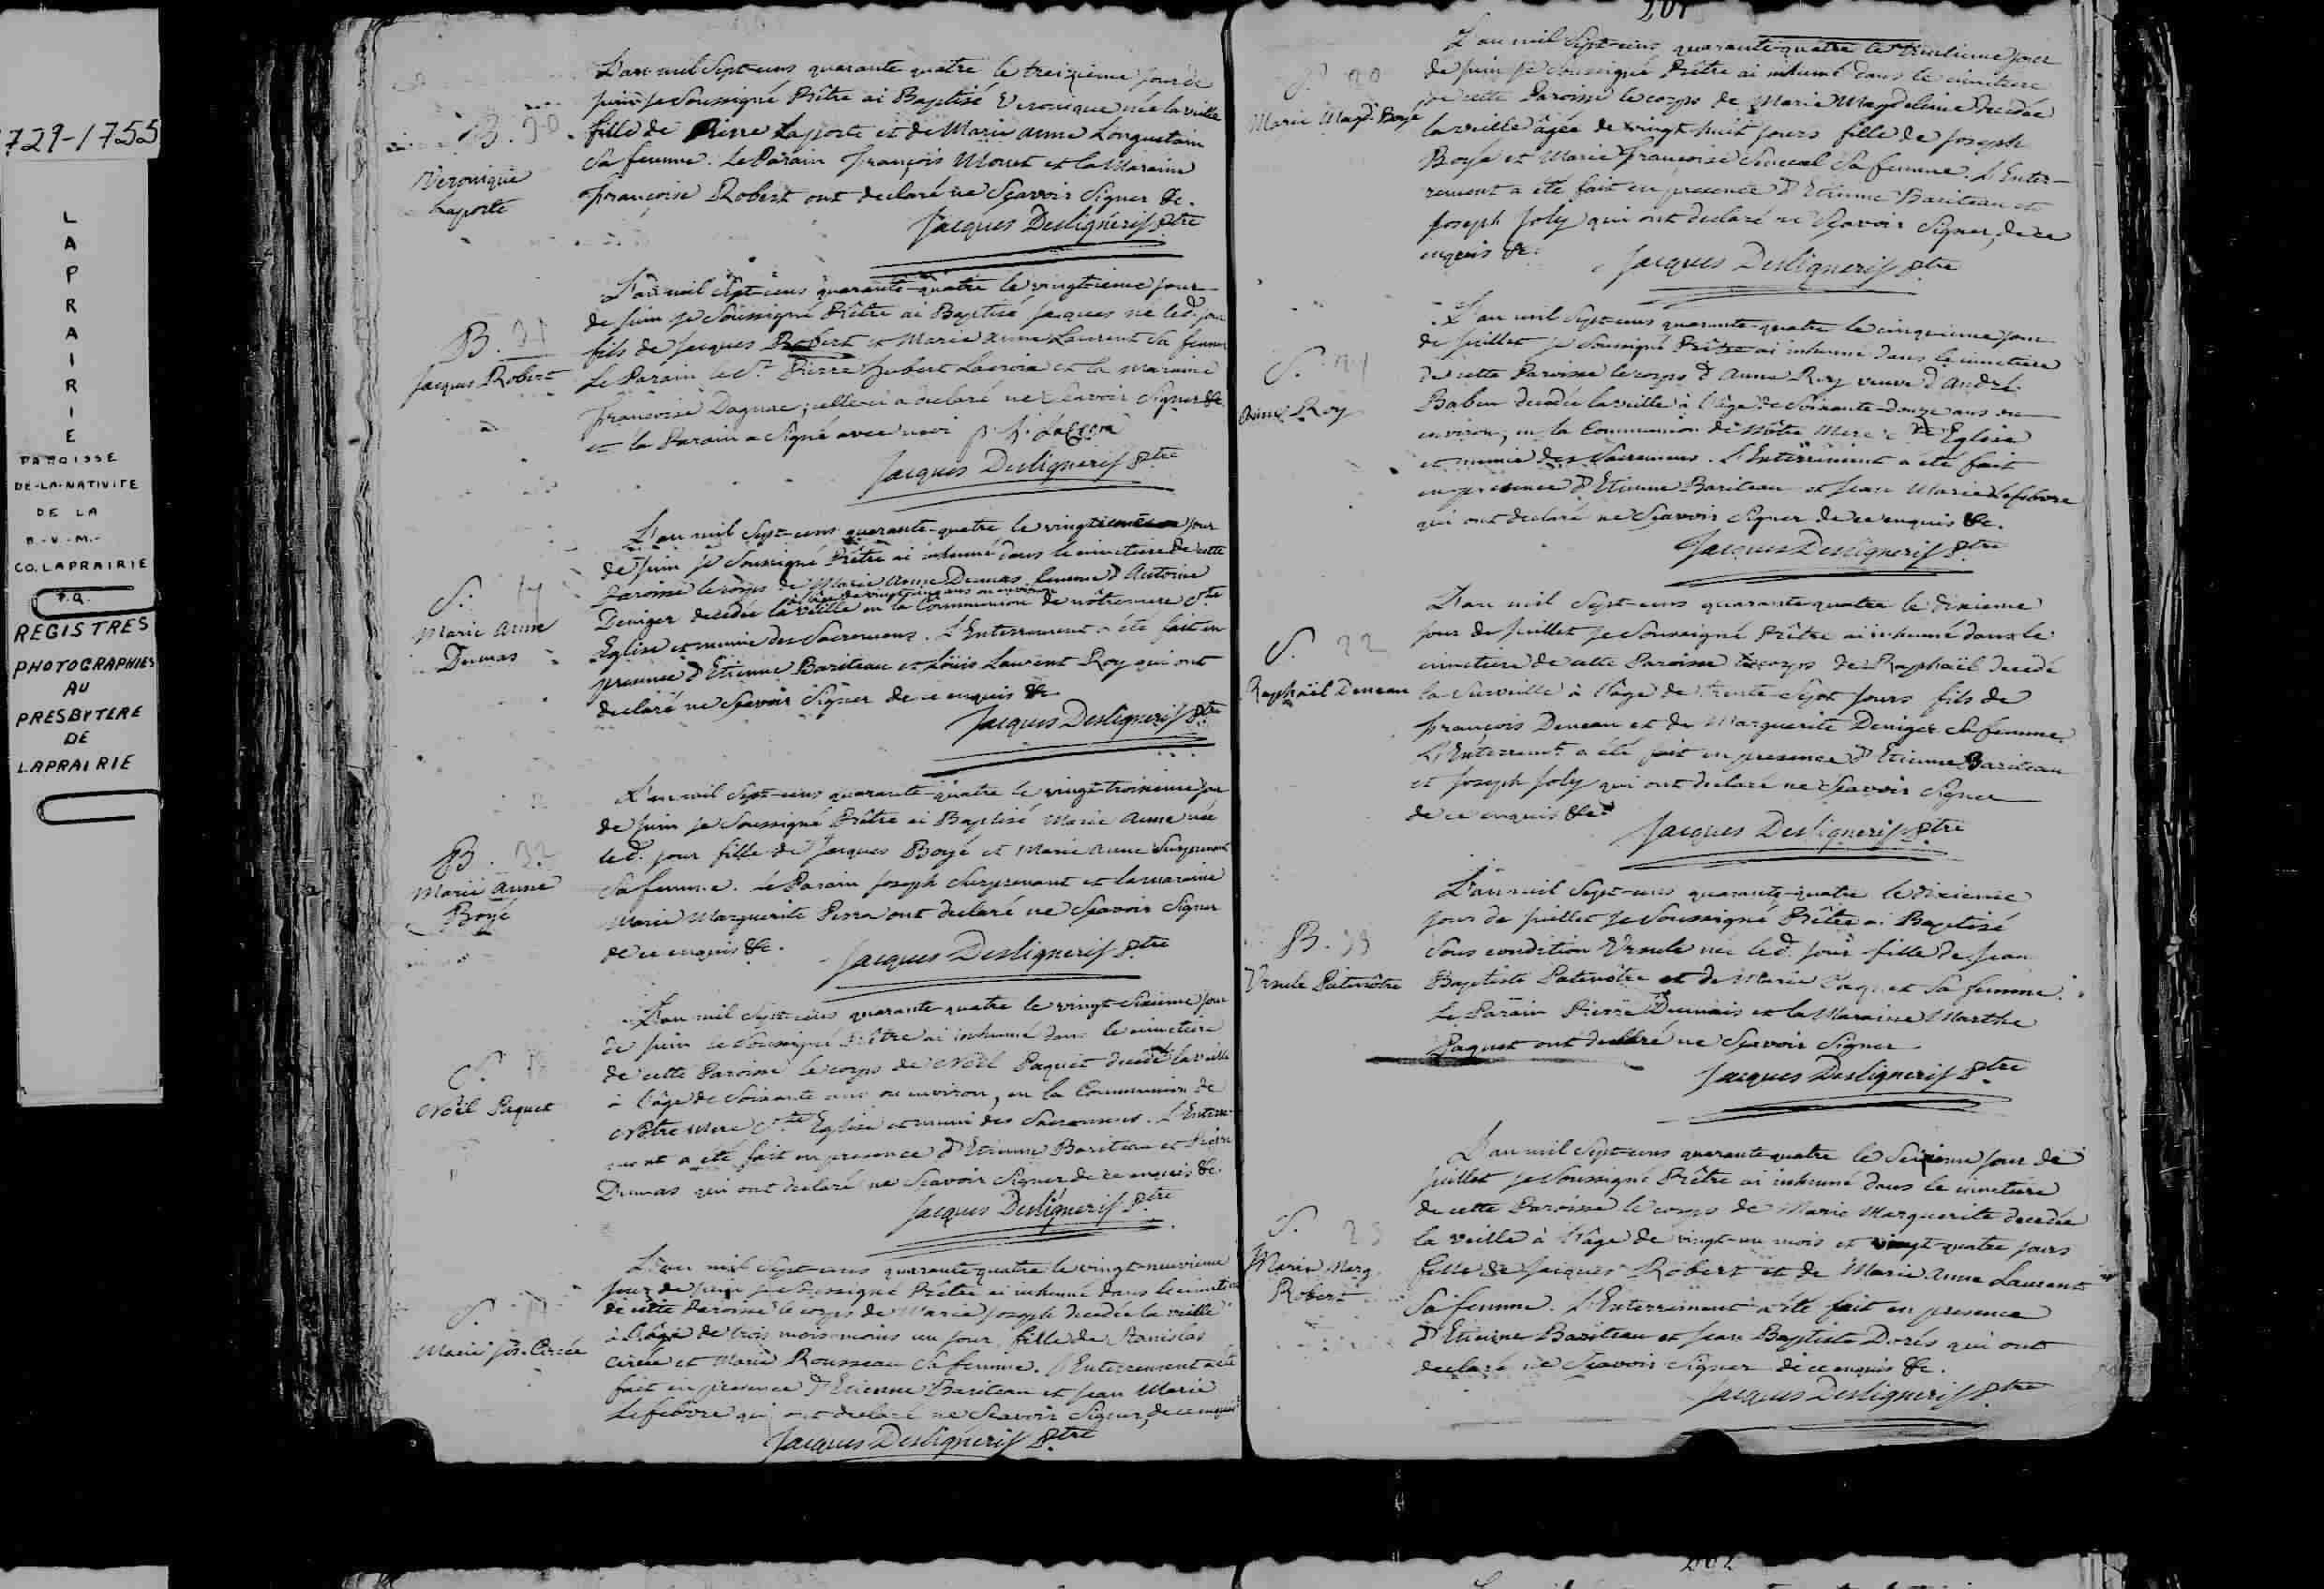 1729-1755
L
A
P
R
A
I
R
I
E
PAROISSE
DE-LA-NATIVITE
DE LA
B.-V.-M.-
CO. LAPRAIRIE
P.Q.
REGISTRES
PHOTOGRAPHIES
AU
PRESBYTERE
DE
LAPRAIRIE
B.
Veronique
Laporte
L'an mil Sept-cens quarante quatre le treizieme jour de
juin je Soussigné Prêtre ai Baptisé Veronique née la veille
fille de Pierre Laporte et de Marie anne Longuetain
Sa femme. Le Parain françois Monet et la Maraine
françoise Robert ont declaré ne Sçavoir Signer &c.
Jacques Deslignerif Ptre
B. 21
Jacques Robert
L'an mil Sept-cens quarante-quatre le vingtieme jour
de juin je Soussigné Prêtre ai Baptisé Jacques né led. jour
fils de Jacques Robert et Marie anne Laurent Sa femme
Le Parain le Sr. Pierre hubert Lacroix et la maraine
françoise Dagnac; celle-ci a declaré ne Scavoir Signer &c.
et le Parain a Signé avec moi p. h. Lacroix
Jacques Deslignerif Ptre
S.
Marie Anne
Dumas
L'an mil Sept-cens quarante-quatre le vingtieme jour
de juin je Soussigné Prêtre ai inhumé dans le cimetiere de cette
Paroisse le corps de Marie Anne Dumas femme d'Antoine
à l'âge de vingt cinq ans ou environ
Deniger decedée la veille en la Communion de nôtre mere Ste
Eglise et munie des Sacremens. L'Enterrement a été fait en
presence d'Etienne Bariteau et Loüis Laurent Roy qui ont
declaré ne Sçavoir Signer de ce enquis &c
Jacques Deslignerif Ptre
B. 22
Marie Anne
Boyé
L'an mil Sept-cens quarante-quatre le vingt-troisieme jour
de juin je Soussigné Prêtre ai Baptisé Marie Anne née
led. jour fille de Jacques Boyé et Marie Anne Surprenant
Sa femme. Le Parain Joseph Surprenant et la maraine
Marie Marguerite Perra ont declaré ne Sçavoir Signer
de ce enquis &c.
Jacques Deslignerif Ptre
S.
Noël Paquet
L'an mil Sept-cens quarante quatre le vingt-Sixieme jour
de juin je Soussigné Prêtre ai inhumé dans le cimetiere
de cette Paroisse le corps de Noël Paquet decedé la veille
à l'âge de Soixante ans ou environ, en la Communion de
Nôtre Mere Ste Eglise et muni des Sacremens. L'Enterre-
ment a été fait en presence d'Etienne Bariteau et Pierre
Dumas qui ont declaré ne Scavoir Signer de ce enquis &c.
Jacques Deslignerif Ptre
S.
Marie jos. Circée
L'an mil Sept-cens quarante quatre le vingt-neuvieme
jour de juin je Soussigné Prêtre ai inhumé dans le cimetiere
de cette Paroisse le corps de Marie Joseph decedée la veille
à l'âge de trois mois moins un jour, fille de Stanislas
Circée et Marie Rousseau Sa femme. L'Enterrement a été
fait en presence d'Etienne Bariteau et Jean Marie
Lefebvre qui ont declaré ne Scavoir Signer, de ce enquis
Jacques Deslignerif Ptre
201
S. 20
Marie Magd. Boyé
L'an mil Sept-cens quarante-quatre le trentieme jour
de juin je Soussigné Prêtre ai inhumé dans le cimetiere
de cette Paroisse le corps de Marie Magdeleine decedée
la veille âgée de vingt-huit jours fille de Joseph
Boyé et Marie françoise Senecal Sa femme. L'Enter-
rement a été fait en presence d'Etienne Bariteau et
Joseph Joly qui ont declaré ne Sçavoir Signer, de ce
enquis &c.
Jacques Deslignerif Ptre
S. 21
Anne Roy
L'an mil Sept-cens quarante-quatre le cinquieme jour
de juillet je Soussigné Prêtre ai inhumé dans le cimetiere
de cette Paroisse le corps d'Anne Roy veuve d'André
Babeu decedée la veille à l'âge de Soixante-douze ans ou
environ, en la Communion de Nôtre Mere Ste Eglise
et munie des Sacremens. L'Enterrement a été fait
en presence d'Etienne Bariteau et Jean Marie Lefebvre
qui ont declaré ne Sçavoir Signer de ce enquis &c.
Jacques Deslignerif Ptre
S. 22
Raphaël Deneau
L'an mil Sept-cens quarante quatre le dixieme
jour de juillet je Soussigné Prêtre ai inhumé dans le
cimetiere de cette Paroisse le corps de Raphaël decedé
la Surveille à l'âge de trente-Sept jours fils de
françois Deneau et de Marguerite Deniger Sa femme.
L'Enterremt. a été fait en presence d'Etienne Bariteau
et Joseph Joly qui ont declaré ne Sçavoir Signer
de ce enquis &c.
Jacques Deslignerif Ptre
B. 23
Ursule Patenôtre
L'an mil Sept-cens quarante-quatre le dixieme
jour de juillet je Soussigné Prêtre ai Baptisé
Sous condition Ursule née led. jour fille de Jean
Baptiste Patenôtre et de Marie Paquet Sa femme.
Le Parain Pierre Dumais et la Maraine Marthe
Paquet ont declaré ne Sçavoir Signer
Jacques Deslignerif Ptre
S. 23
Marie Marg.
Robert
L'an mil Sept-cens quarante quatre le Seizieme jour de
juillet je Soussigné Prêtre ai inhumé dans le cimetiere
de cette Paroisse le corps de Marie Marguerite decedée
la veille à l'âge de vingt-un mois et vingt-quatre jours
fille de Jacques Robert et de Marie Anne Laurent
Sa femme. L'Enterrement a été fait en presence
d'Etienne Bariteau et Jean Baptiste Dorés qui ont
declaré ne Sçavoir Signer de ce enquis &c.
Jacques Deslignerif Ptre
202